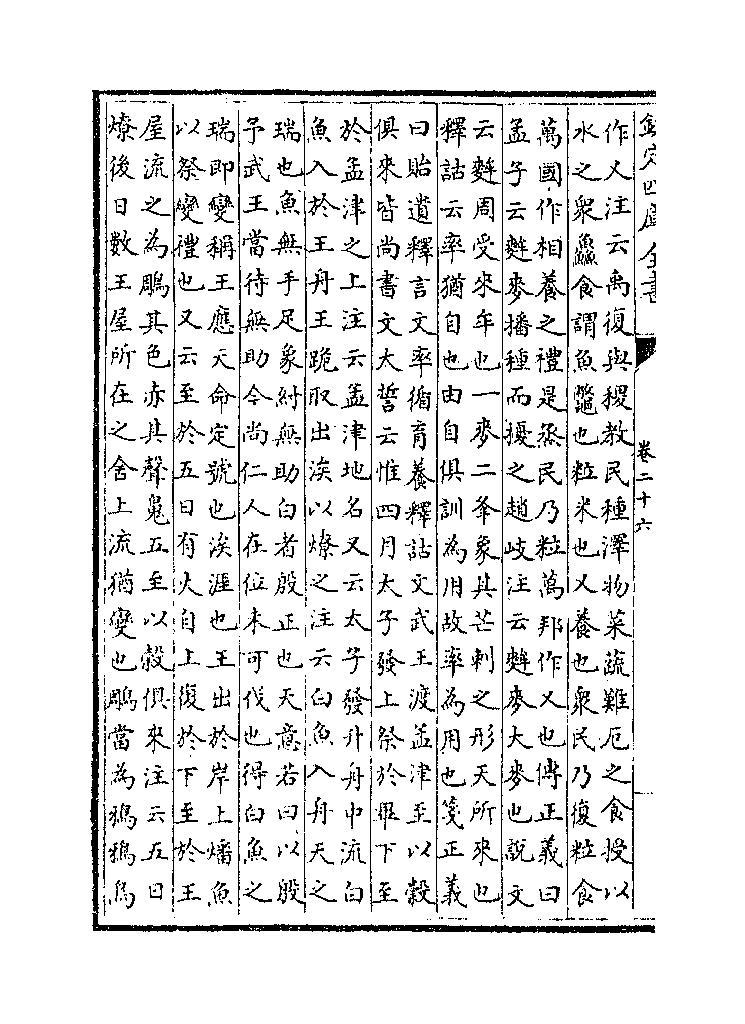 欽定四庫全書
卷二十六
作乂注云禹復與稷教民種澤物菜蔬難厄之食授以
水之衆鱻食謂魚鼈也粒米也乂養也衆民乃復粒食
萬國作相養之禮是烝民乃粒萬邦作乂也傳正義曰
孟子云麰麥播種而擾之趙岐注云麰麥大麥也説文
云麰周受來牟也一麥二夆象其芒刺之形天所來也
釋詁云率猶自也由自俱訓為用故率為用也箋正義
曰貽遺釋言文率循育養釋詁文武王渡孟津至以穀
俱來皆尚書文太誓云惟四月太子發上祭於畢下至
於孟津之上注云孟津地名又云太子發升舟中流白
魚入於王舟王跪取出涘以燎之注云白魚入舟天之
瑞也魚無手足象紂無助白者殷正也天意若曰以殷
予武王當待無助今尚仁人在位未可伐也得白魚之
瑞即變稱王應天命定號也涘涯也王出於岸上燔魚
以祭變禮也又云至於五日有火自上復於下至於王
屋流之為鵰其色赤其聲五至以穀俱來注云五日
燎後日數王屋所在之舍上流猶變也鵰當為鴉鴉烏